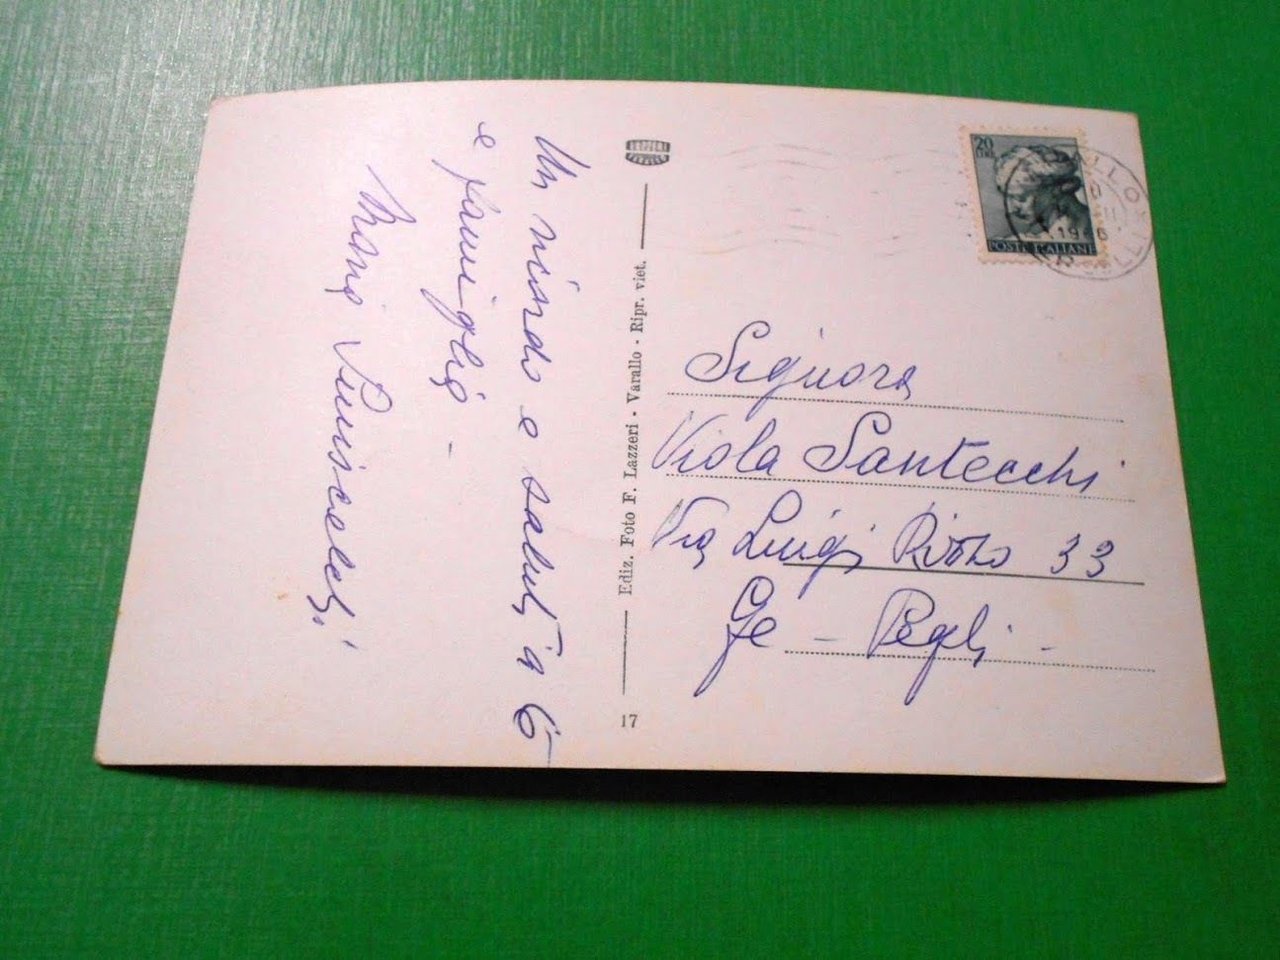 Un ricordo e saluti a te
e famiglia -
Maria
LAZZERI
VARALLO
17
Ediz. Foto F. Lazzeri - Varallo - Ripr. viet.
20
LIRE
POSTE ITALIANE
1966
Signora
Viola Santecchi
Via Luigi Rizzo 33
Ge - Pegli -